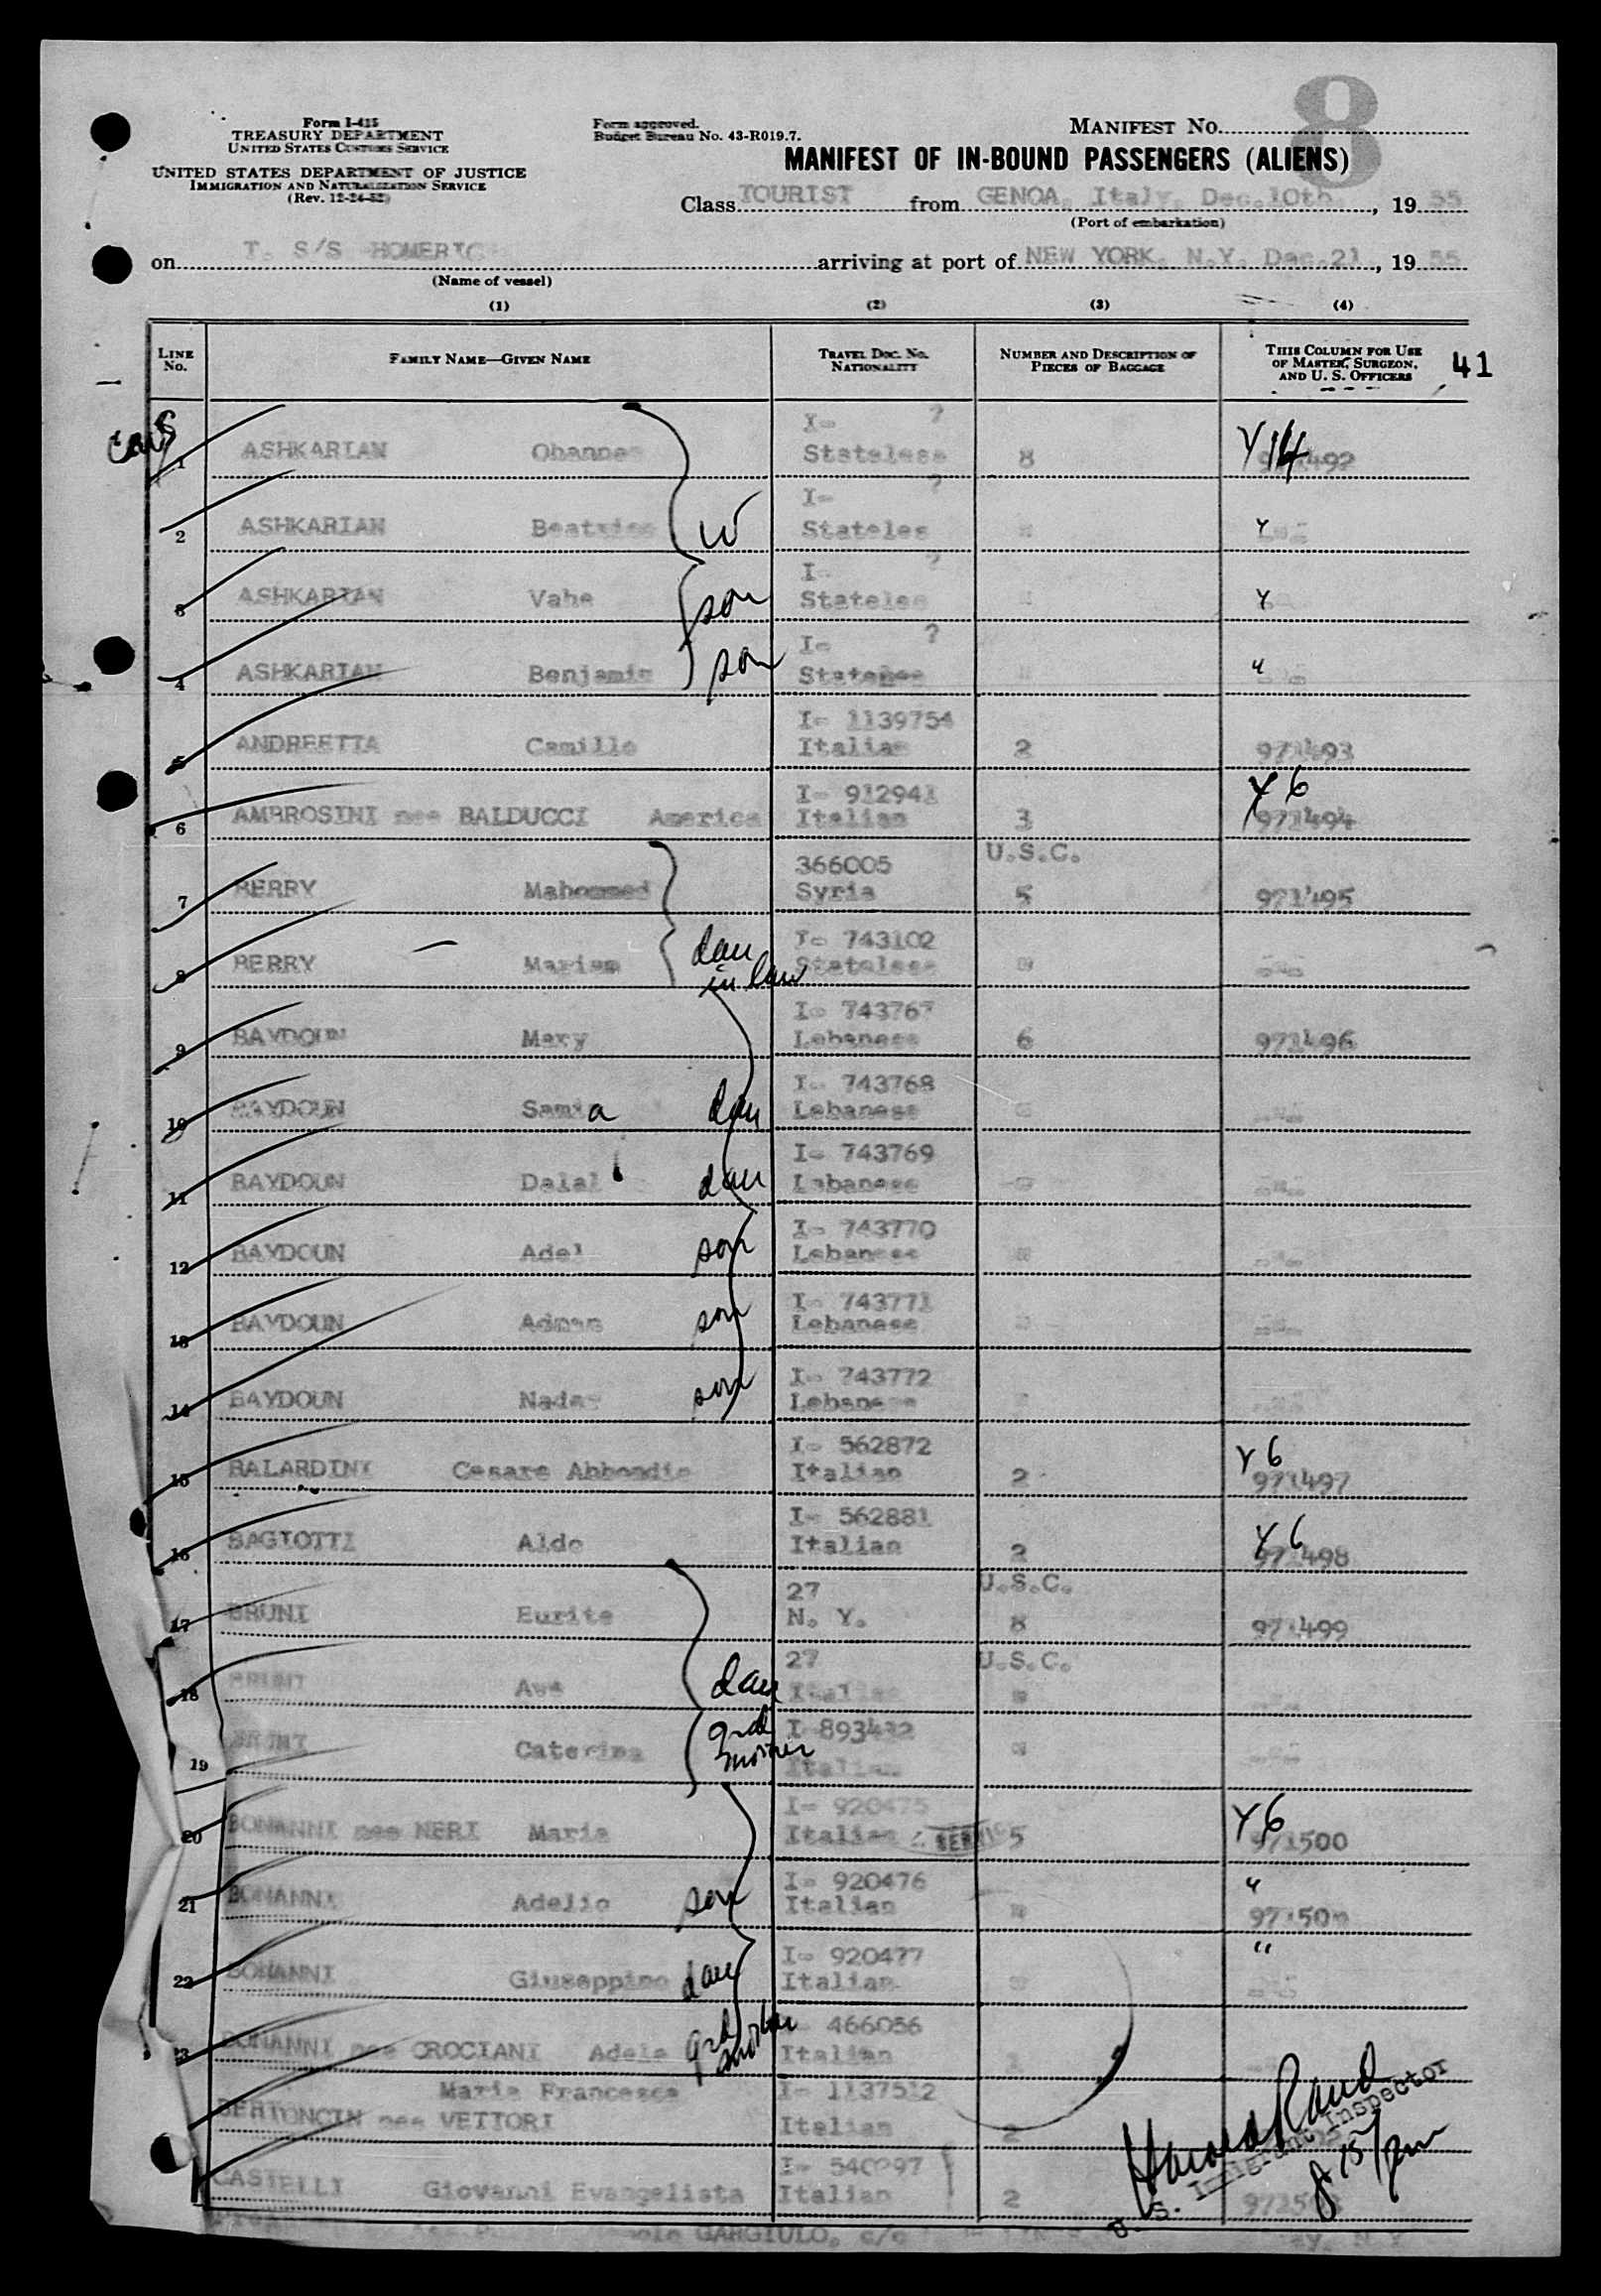 8
Form I-415
TREASURY DEPARTMENT
UNITED STATES CUSTOMS SERVICE
UNITED STATES DEPARTMENT OF JUSTICE
IMMIGRATION AND NATURALIZATION SERVICE
(Rev. 12-24-52)
Form approved.
Budget Bureau No. 43-R019.7.
MANIFEST NO.
MANIFEST OF IN-BOUND PASSENGERS (ALIENS)
Class TOURIST from GENOA, Italy, Dec.10th, 19 55
(Port of embarkation)
on T. S/S HOMERIC arriving at port of NEW YORK, N.Y. Dec.21, 19 55
(Name of vessel)
(1) (2) (3) (4)
LINE No. FAMILY NAME—GIVEN NAME TRAVEL DOC. NO. NATIONALITY NUMBER AND DESCRIPTION OF PIECES OF BAGGAGE THIS COLUMN FOR USE OF MASTER, SURGEON, AND U. S. OFFICERS 41
I- ?
1 ASHKARIAN Ohannes Stateless 8 Y14 971492
I- ?
2 ASHKARIAN Beatrice W Stateles " Y
I- ?
3 ASHKARIAN Vahe son Stateles " Y
I- ?
4 ASHKARIAN Benjamin son " "
I- 1139754
5 ANDREETTA Camillo Italian 2 971493
I- 912941 Y 6
6 AMBROSINI nee BALDUCCI America Italian 3 971494
366005 U.S.C.
7 BERRY Mahommed Syria 5 971495
I- 743102
8 BERRY Mariam dau in law Stateless "
I- 743767
9 BAYDOUN Mary Lebanese 6 971496
I- 743768
10 BAYDOUN Samia dau Lebanese "
I- 743769
11 BAYDOUN Dalal dau Lebanese "
I- 743770
12 BAYDOUN Adel son Lebanese "
I- 743771
13 BAYDOUN Adnan son Lebanese "
I- 743772
14 BAYDOUN son Lebanese "
I- 562872 Y 6
15 BALARDINI Cesare Abbondio Italian 2 971497
I- 562881 Y 6
16 BAGIOTTI Aldo Italian 2 971498
27 U.S.C.
17 BRUNI Eurite N. Y. 8 971499
27 U.S.C.
18 BRUNI dau Italian "
I-893432
19 BRUNI Caterina grd mother Italian "
I- 920475 Y6
20 BONANNI nee NERI Maria Italian 5 971500
I- 920476 "
21 BONANNI Adelio son Italian " 971500
I- 920477 "
22 BONANNI Giuseppina dau Italian "
I- 466056
23 BONANNI nee CROCIANI Adele grd mother Italian 1
Maria Francesca I- 1137512
BERTONCIN nee VETTORI Italian 2
CASTELLI Giovanni Evangelista Italian 2
Harold Rand
U. S. Immigrant Inspector
GARGIULO, c/o